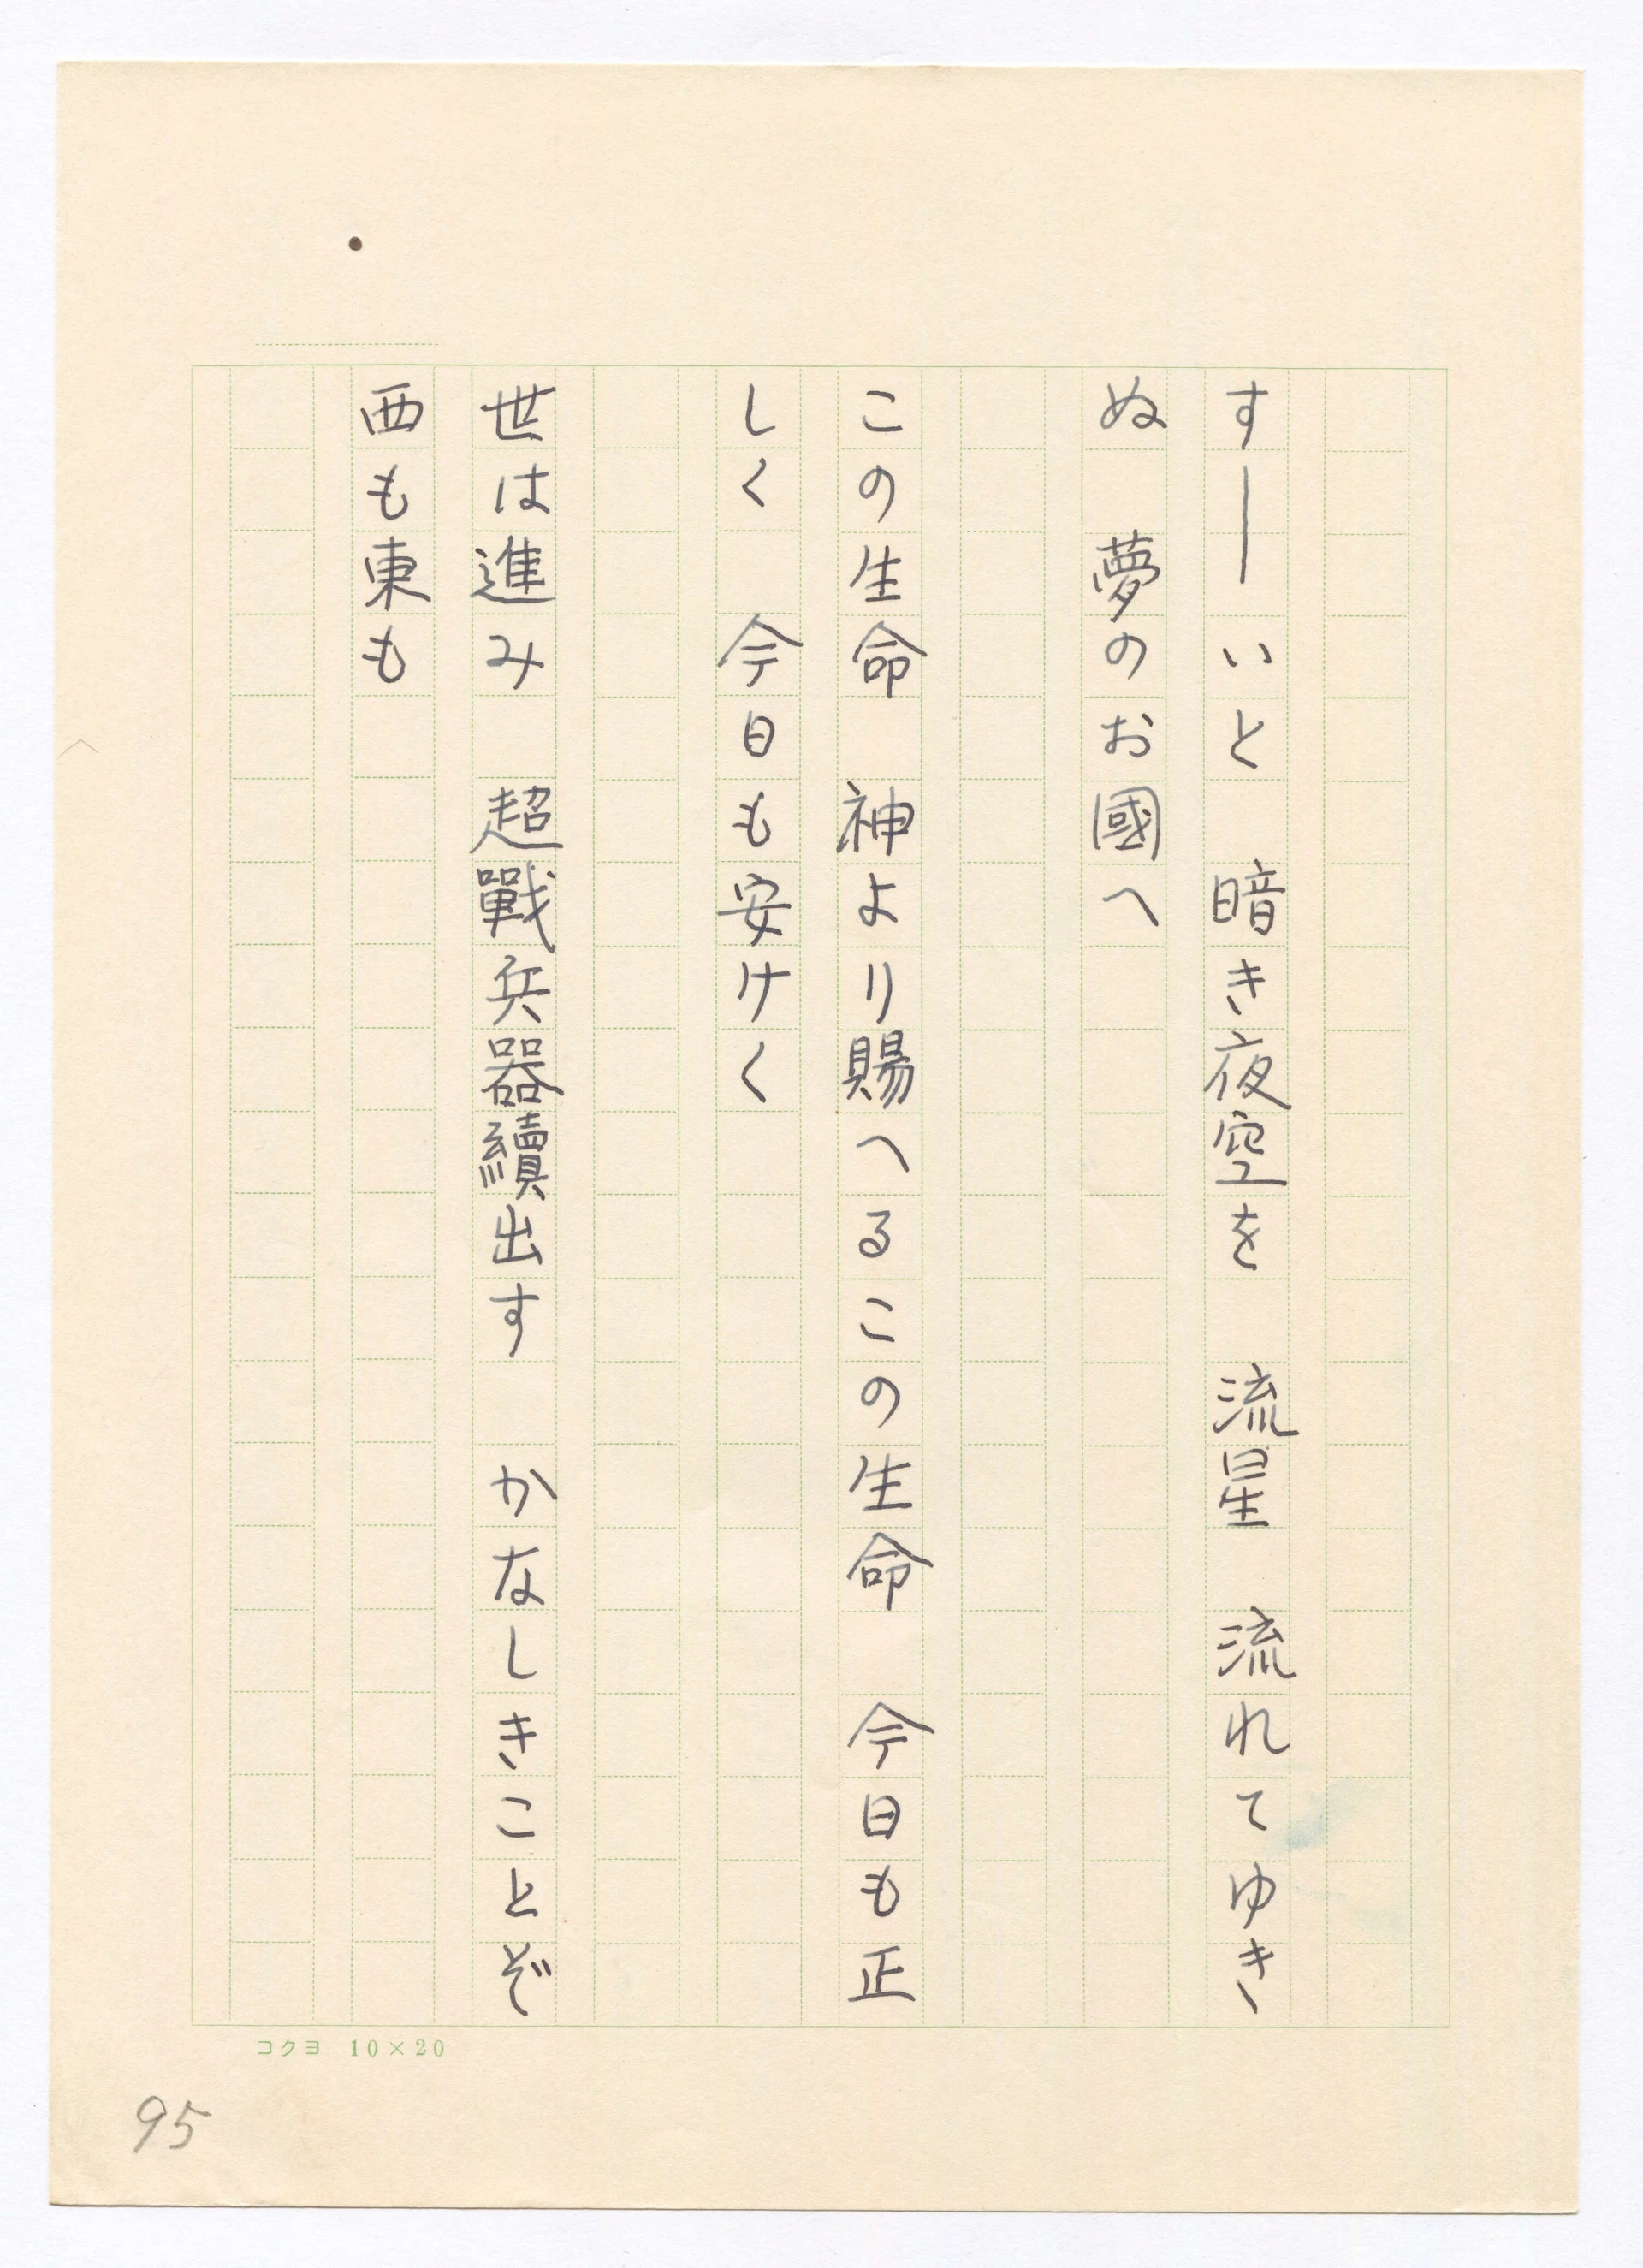 すーいと　暗き夜空を　流星　流れてゆき
ぬ　夢のお國へ
この生命　神より賜へるこの生命　今日も正
しく　今日も安けく
世は進み　超戰兵器續出す　かなしきことぞ
西も東も
コクヨ 10×20
95